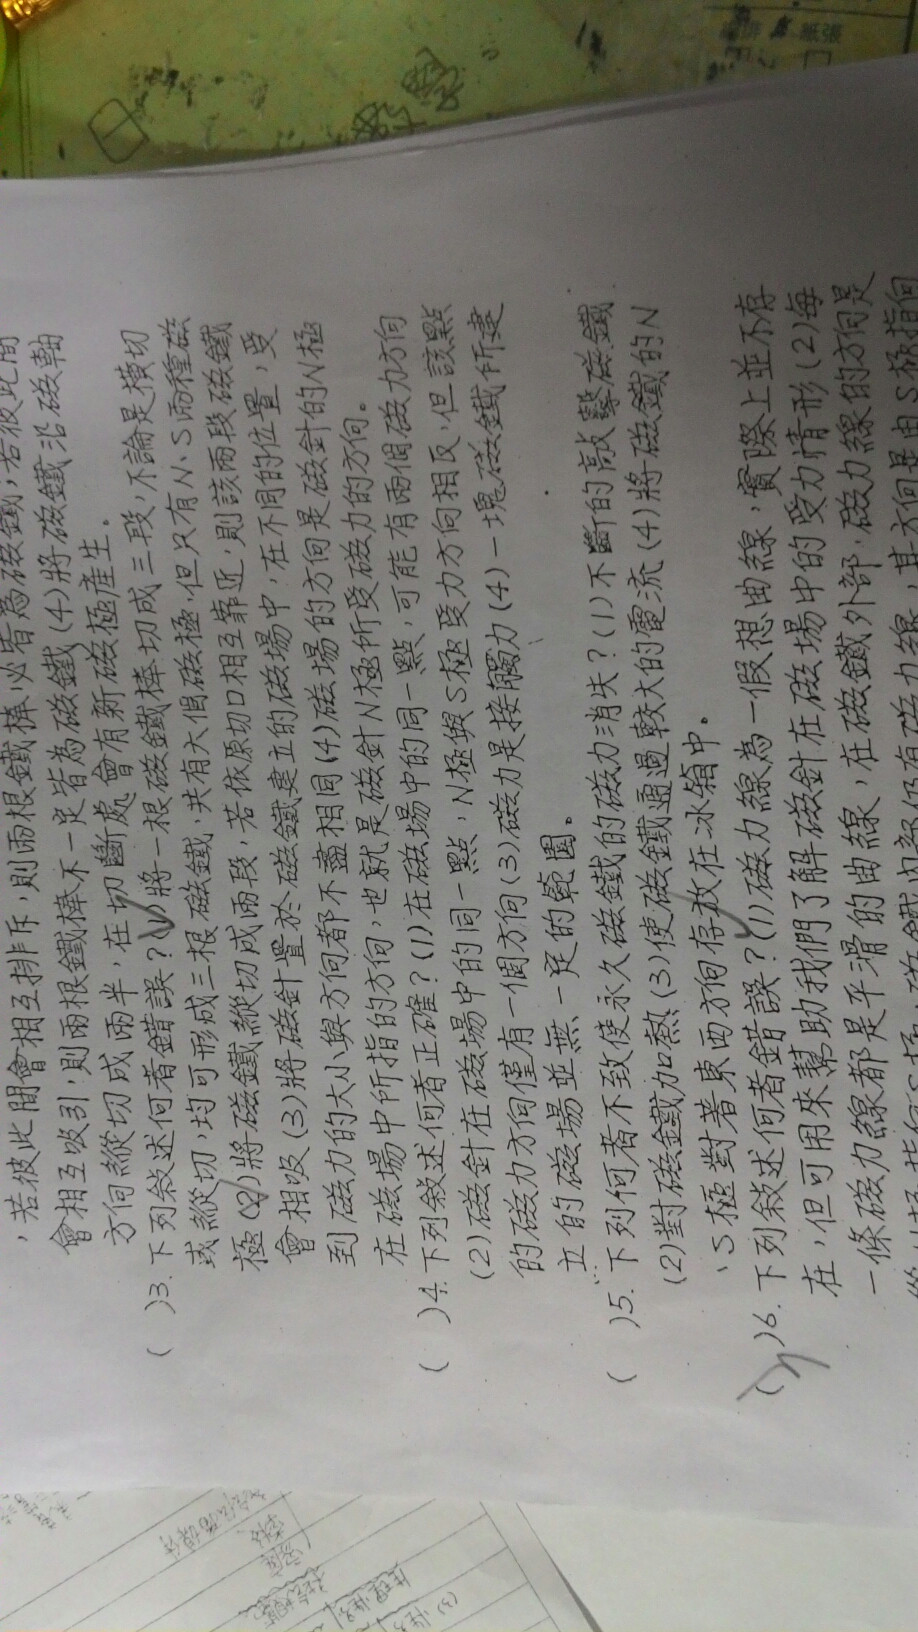 ，若彼此間會相互排斥，則兩根鐵棒必皆為磁鐵，若彼此間
會相互吸引，則兩根鐵棒不一定皆為磁鐵(4)將磁鐵沿磁軸
方向縱切成兩半，在切斷處會有新磁極產生。
( )3.下列敘述何者錯誤？(1)將一根磁鐵棒切成三段，不論是橫切
或縱切，均可形成三根磁鐵，共有六個磁極，但只有N、S兩種磁
極(2)將磁鐵縱切成兩段，若依原切口相互靠近，則該兩段磁鐵
會相吸(3)將磁針置於磁鐵建立的磁場中，在不同的位置，受
到磁力的大小與方向都不盡相同(4)磁場的方向是磁針的N極
在磁場中所指的方向，也就是磁針N極所受磁力的方向。
( )4.下列敘述何者正確？(1)在磁場中的同一點，可能有兩個磁力方向
(2)磁針在磁場中的同一點，N極與S極受力方向相反，但該點
的磁力方向僅有一個方向(3)磁力是接觸力(4)一塊磁鐵所建
立的磁場並無一定的範圍。
( )5.下列何者不致使永久磁鐵的磁力消失？(1)不斷的敲擊磁鐵
(2)對磁鐵加熱(3)使磁鐵通過較大的電流(4)將磁鐵的N
、S極對著東西方向存放在冰箱中。
( )6.下列敘述何者錯誤？(1)磁力線為一假想曲線，實際上並不存
在，但可用來幫助我們了解磁針在磁場中的受力情形(2)每
一條磁力線都是平滑的曲線，在磁鐵外部，磁力線的方向是
磁鐵內部仍有磁力線，其方向是由S極指向
紙張